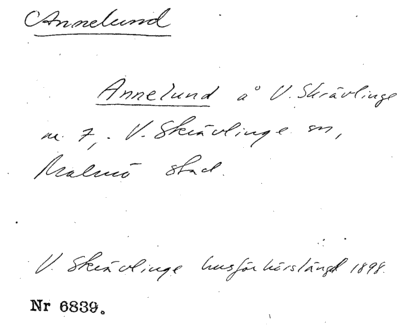 Annelund
Annelund å V. Skrävlinge
nr. 7, V. Skrävlinge sn,
Malmö stad.
V. Skrävlinge husförhörslängd 1898.
Nr 6839.